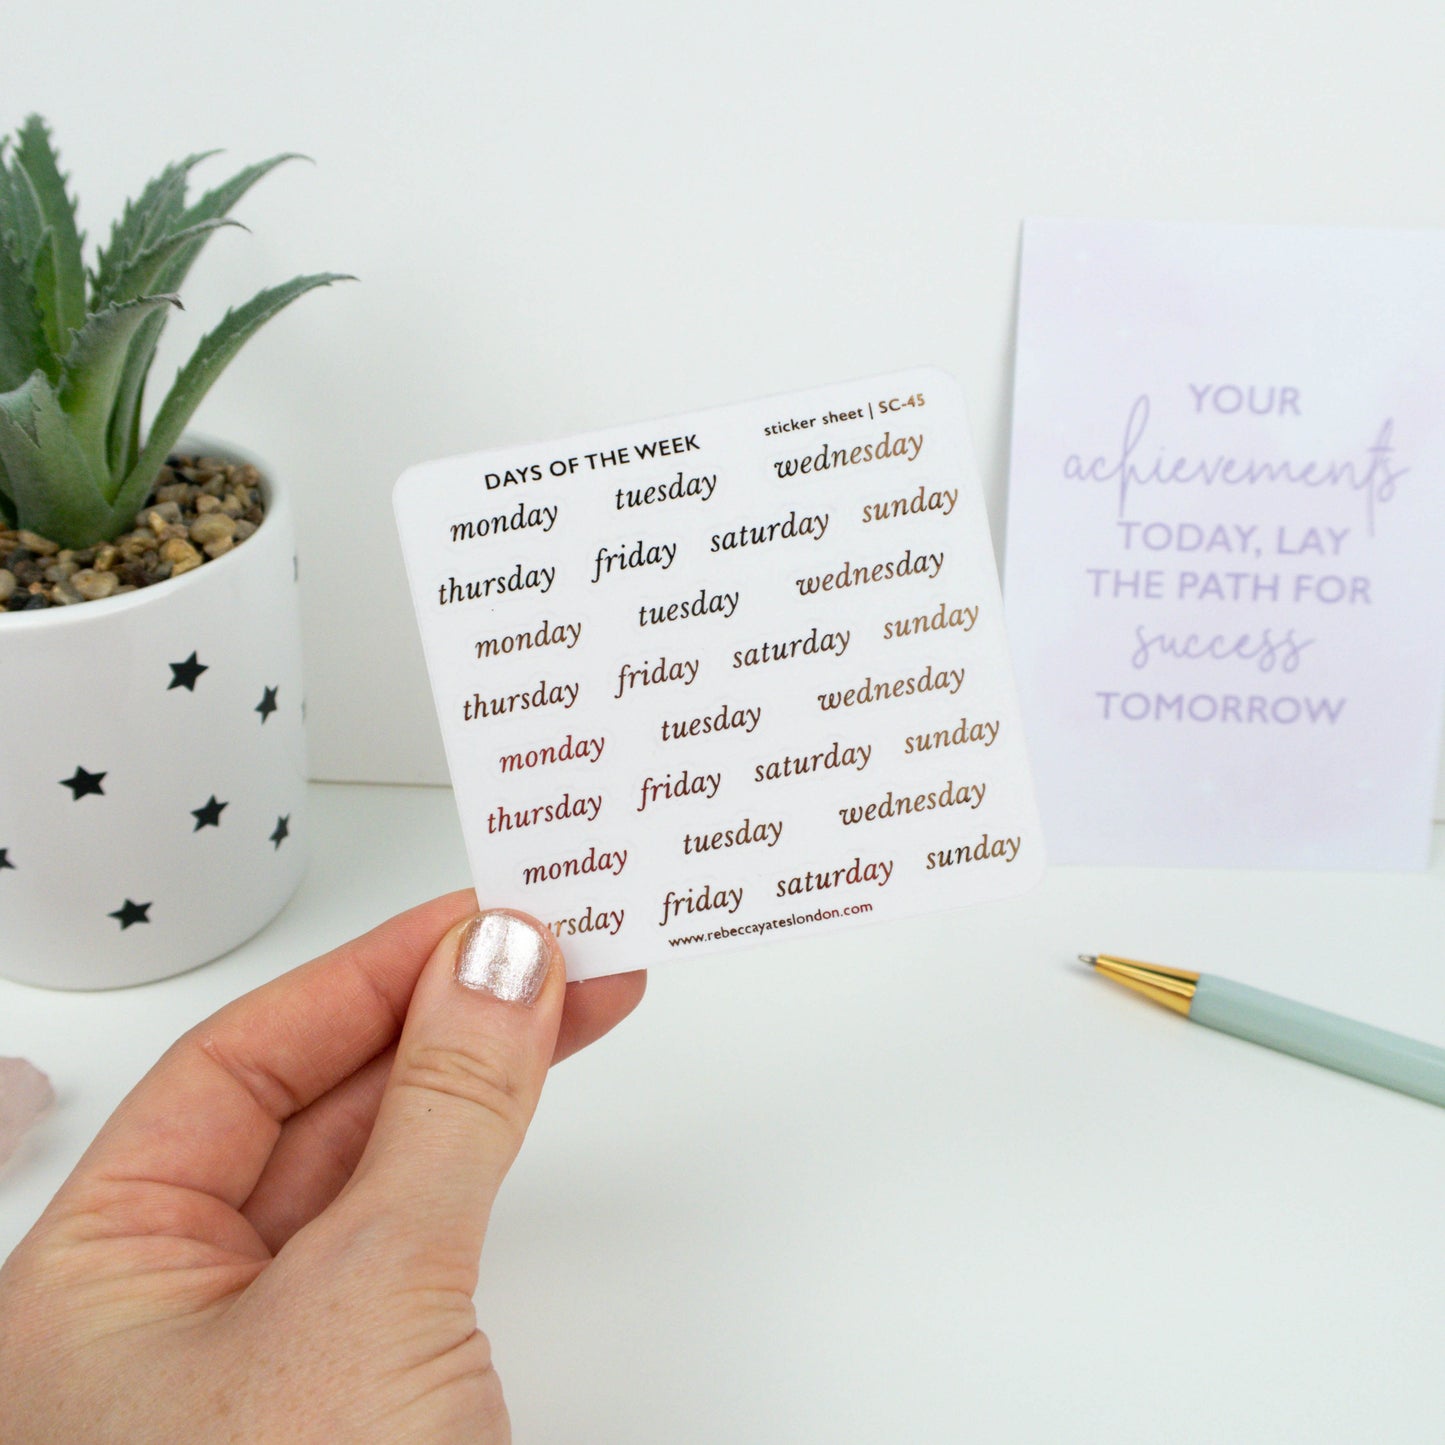 DAYS OF THE WEEK
sticker sheet | SC-45
monday tuesday wednesday
thursday friday saturday sunday
monday tuesday wednesday
thursday friday saturday sunday
monday tuesday wednesday
thursday friday saturday sunday
monday tuesday wednesday
ursday friday saturday sunday
www.rebeccayateslondon.com
YOUR
achievements
TODAY, LAY
THE PATH FOR
success
TOMORROW